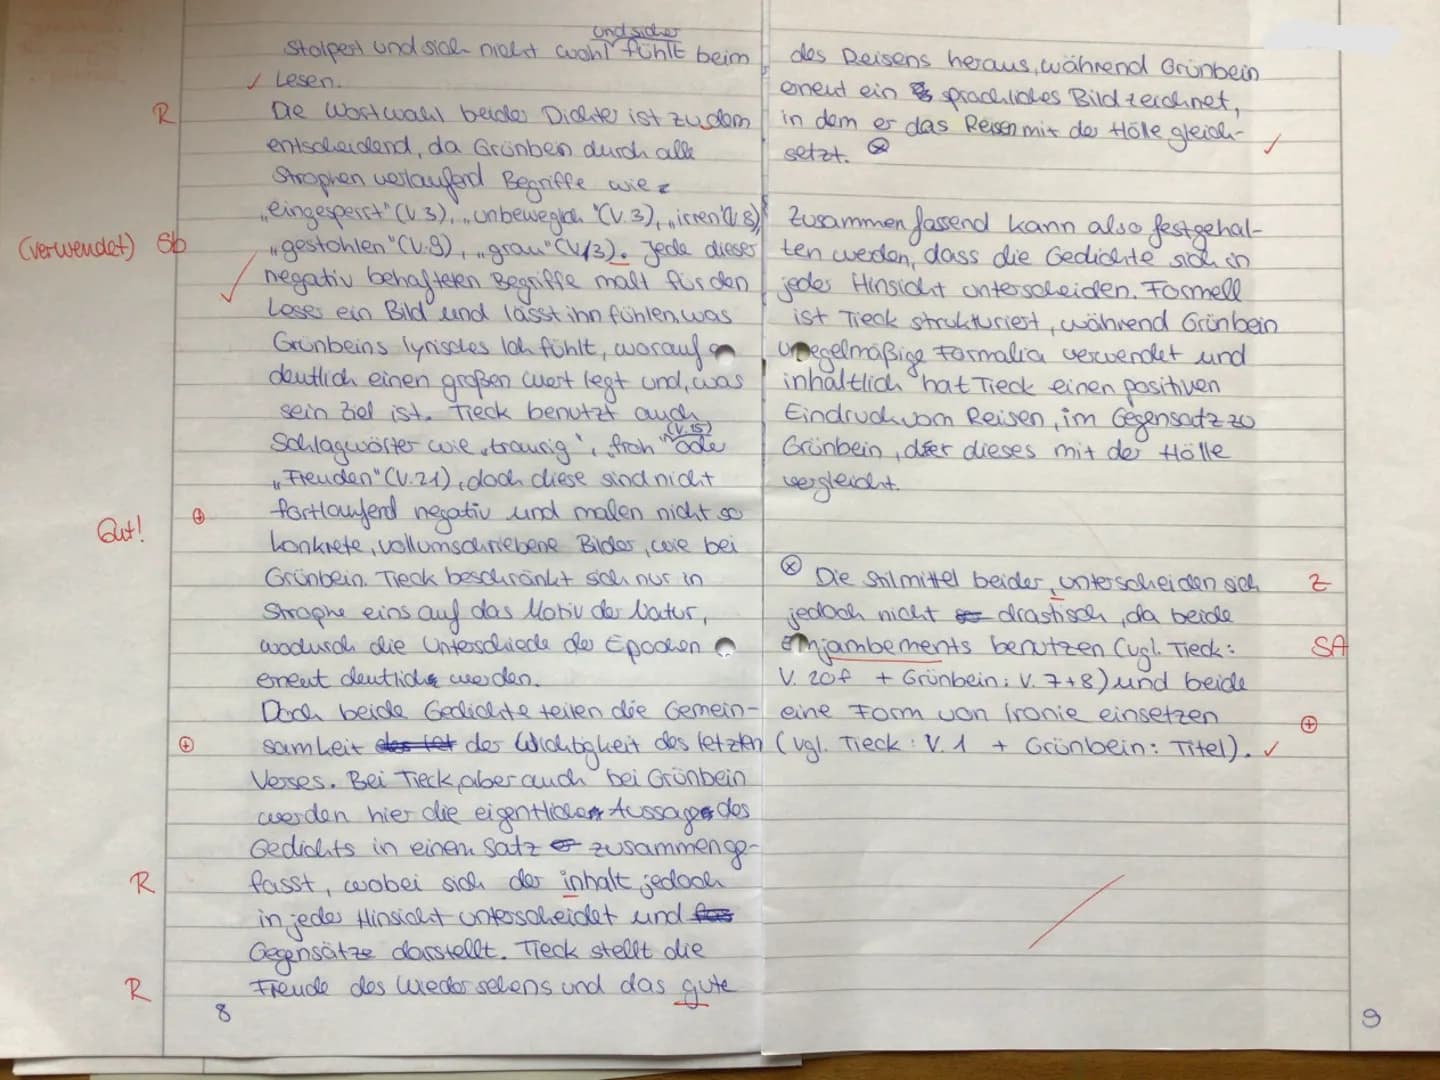 und sicher
stolpert und sich nicht wohl fühlt beim
Lesen.
R
Die Wortwahl beider Dichter ist zudem
entscheidend, da Grünbein durch alle
Strophen verlaufend Begriffe wie
„eingesperrt" (V.3), „unbeweglich" (V.3), „irren" (V.8),
(verwendet) Sb
„gestohlen" (V.9), „grau" (V.13). Jede dieser
negativ behafteten Begriffe malt für den
Leser ein Bild und lässt ihn fühlen, was
Grünbeins lyrisches Ich fühlt, worauf er
deutlich einen großen Wert legt und, was
sein Ziel ist. Tieck benutzt auch
(V.15)
Schlagwörter wie „traurig", „froh" oder
„Freuden" (V.21), doch diese sind nicht
Gut! ⊕
fortlaufend negativ und malen nicht so
konkrete, vollumschriebene Bilder, wie bei
Grünbein. Tieck beschränkt sich nur in
Strophe eins auf das Motiv der Natur,
wodurch die Unterschiede der Epochen
erneut deutlich werden.
Doch beide Gedichte teilen die Gemein-
⊕
samkeit der Wichtigkeit des letzten
Verses. Bei Tieck, aber auch bei Grünbein
werden hier die eigentliche Aussage des
Gedichts in einem Satz zusammenge-
R
fasst, wobei sich der inhalt jedoch
in jeder Hinsicht unterscheidet und
Gegensätze darstellt. Tieck stellt die
R
Freude des Wiedersehens und das gute
8
des Reisens heraus, während Grünbein
erneut ein sprachliches Bild zeichnet,
in dem er das Reisen mit der Hölle gleich-
setzt. ⊗
Zusammenfassend kann also festgehal-
ten werden, dass die Gedichte sich in
jeder Hinsicht unterscheiden. Formell
ist Tieck strukturiert, während Grünbein
unregelmäßige Formalia verwendet und
inhaltlich hat Tieck einen positiven
Eindruck vom Reisen, im Gegensatz zo
Grünbein, der dieses mit der Hölle
vergleicht.
⊗ Die Stilmittel beider, unterscheiden sich
Z
jedoch nicht drastisch, da beide
Enjambements benutzen (vgl. Tieck:
SA
V. 20f + Grünbein: V. 7+8) und beide
eine Form von Ironie einsetzen
⊕
(vgl. Tieck: V. 1 + Grünbein: Titel).
9